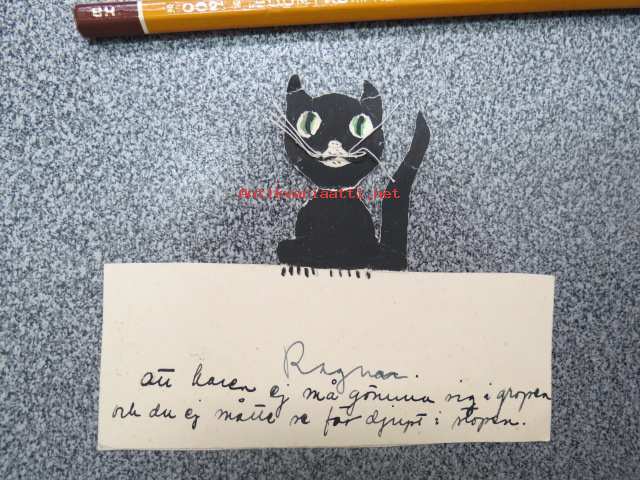 Antikvariaatti.net
Ragnar.
att haren ej må gömma sig i gropen
och du ej måtte se för djupt i stopen.